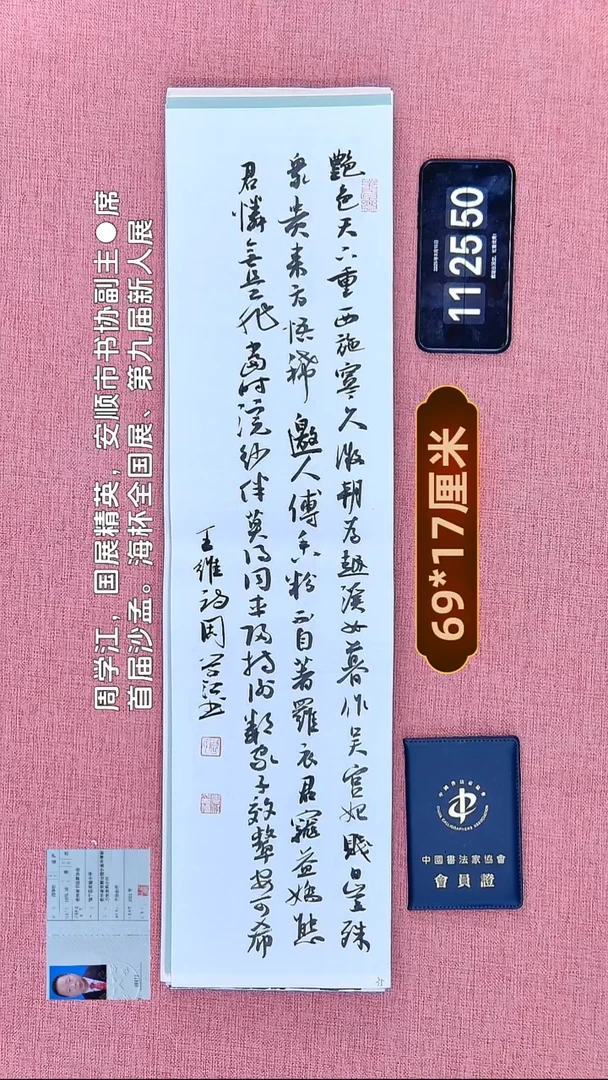 周学江，国展精英，安顺市书协副主●席
首届沙孟。海杯全国展、第九届新人展
艷色天下重西施寧久微朝為越溪女暮作吳宮妃賤日豈殊
衆貴来方悟稀邀人傅香粉不自著羅衣君寵益嬌態
君憐無是非當時浣紗伴莫得同車歸持謝鄰家子效顰安可希
王維詩周学江书
11 25 50
69*17厘米
中國書法家協會
CHINA CALLIGRAPHERS ASSOCIATION
中國書法家協會
會員證